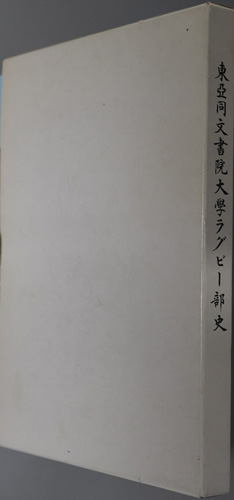 東亞同文書院大學ラグビー部史